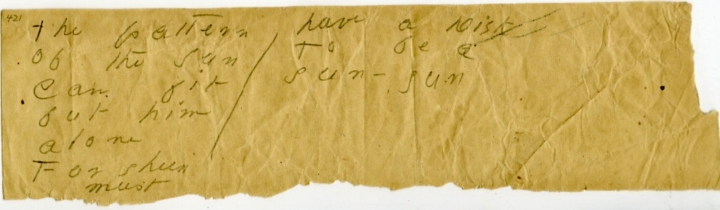 421
the pattern
of the sun
Can fit
but him
alone
For sheen
must
have a Disk
To be a
sun - sun